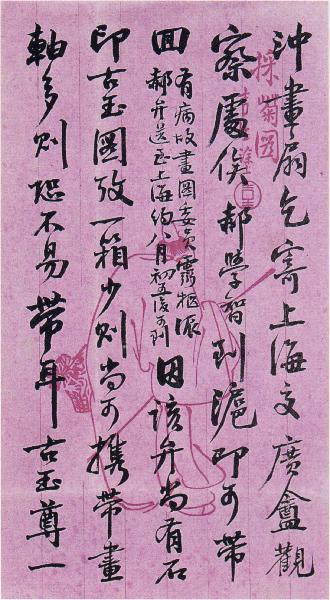 沖畫扇乞寄上海交廣盦觀
察處俟郝學智到滬即可帶
回有病故畫圖委員靈柩派
郝弁送至上海約八月初五後可到因該弁尚有石
印古玉圖攷一箱少則尚可攜帶畫
軸多則恐不易帶耳古玉尊一
採菊圖